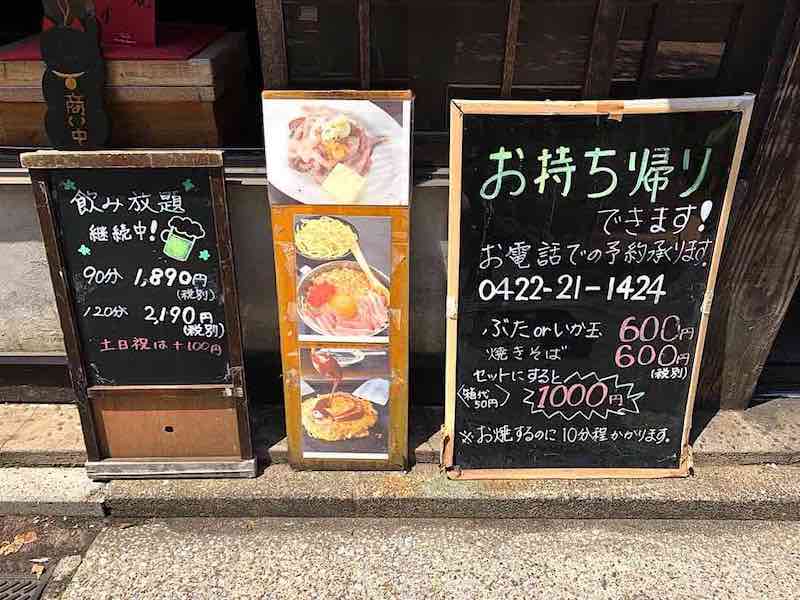 商い中
飲み放題
継続中!
90分 1,890円
(税別)
120分 2,190円
(税別)
土日祝は+100円
お持ち帰り
できます!
お電話での予約承ります。
0422-21-1424
ぶたorいか玉 600円
焼きそば 600円
(税別)
セットにすると
〈箱代50円〉 1000円
※お焼するのに10分程かかります。